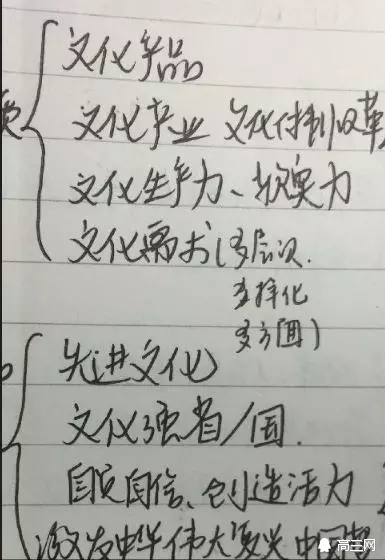 文化产品
文化产业 文化体制改革
文化生产力、软实力
文化需求(多层次.
多样化
多方面)
先进文化
文化强省/国.
自觉自信、创造活力
激发中华伟大复兴中国梦
高三网